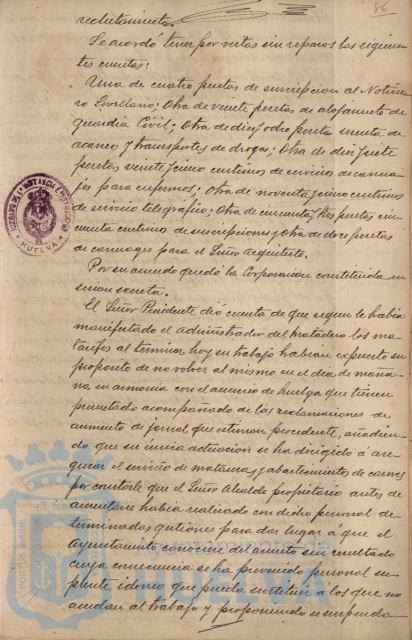 86
reclutamiento.
Se acordó tener por vistas sin reparos las siguien-
tes cuentas:
Una de cuatro pesetas de suscripcion al Noticie-
ro Sevillano; Otra de veinte pesetas de alojamiento de
guardia Civil; Otra de diez y ocho pesetas
acarreo y transportes de drogas; Otra de diez y siete
pesetas veinte y cinco centimos de servicio de carrua-
jes para enfermos; Otra de noventa y cinco centimos
de servicio telegrafico; Otra de cincuenta y tres pesetas cin-
cuenta centimos de suscripciones y otra de doce pesetas
de carruages para el Señor Arquitecto.
Por su acuerdo quedó la Corporacion constituida en
sesion secreta.
El Señor Presidente dió cuenta de que segun le habia
manifestado el administrador del matadero los ma-
tarifes al terminar hoy su trabajo habian expuesto su
propósito de no volver al mismo en el dia de maña-
na, en armonia con el anuncio de huelga que tienen
presentado acompañado de las reclamaciones de
aumento de jornal que estiman procedente, añadien-
do que su única actuacion se ha dirigido á ase-
gurar el servicio de matanzas y abastecimiento de carnes
por constarle que el Señor Alcalde propietario antes de
ausentarse habia realizado con dicho personal de-
terminadas gestiones para dar lugar á que el
Ayuntamiento conociese del asunto sin resultado
cuya consecuencia se ha prevenido personal su-
plente idoneo que pueda sustituir a los que no
acudan al trabajo y proponiendo se suspenda
HUELVA